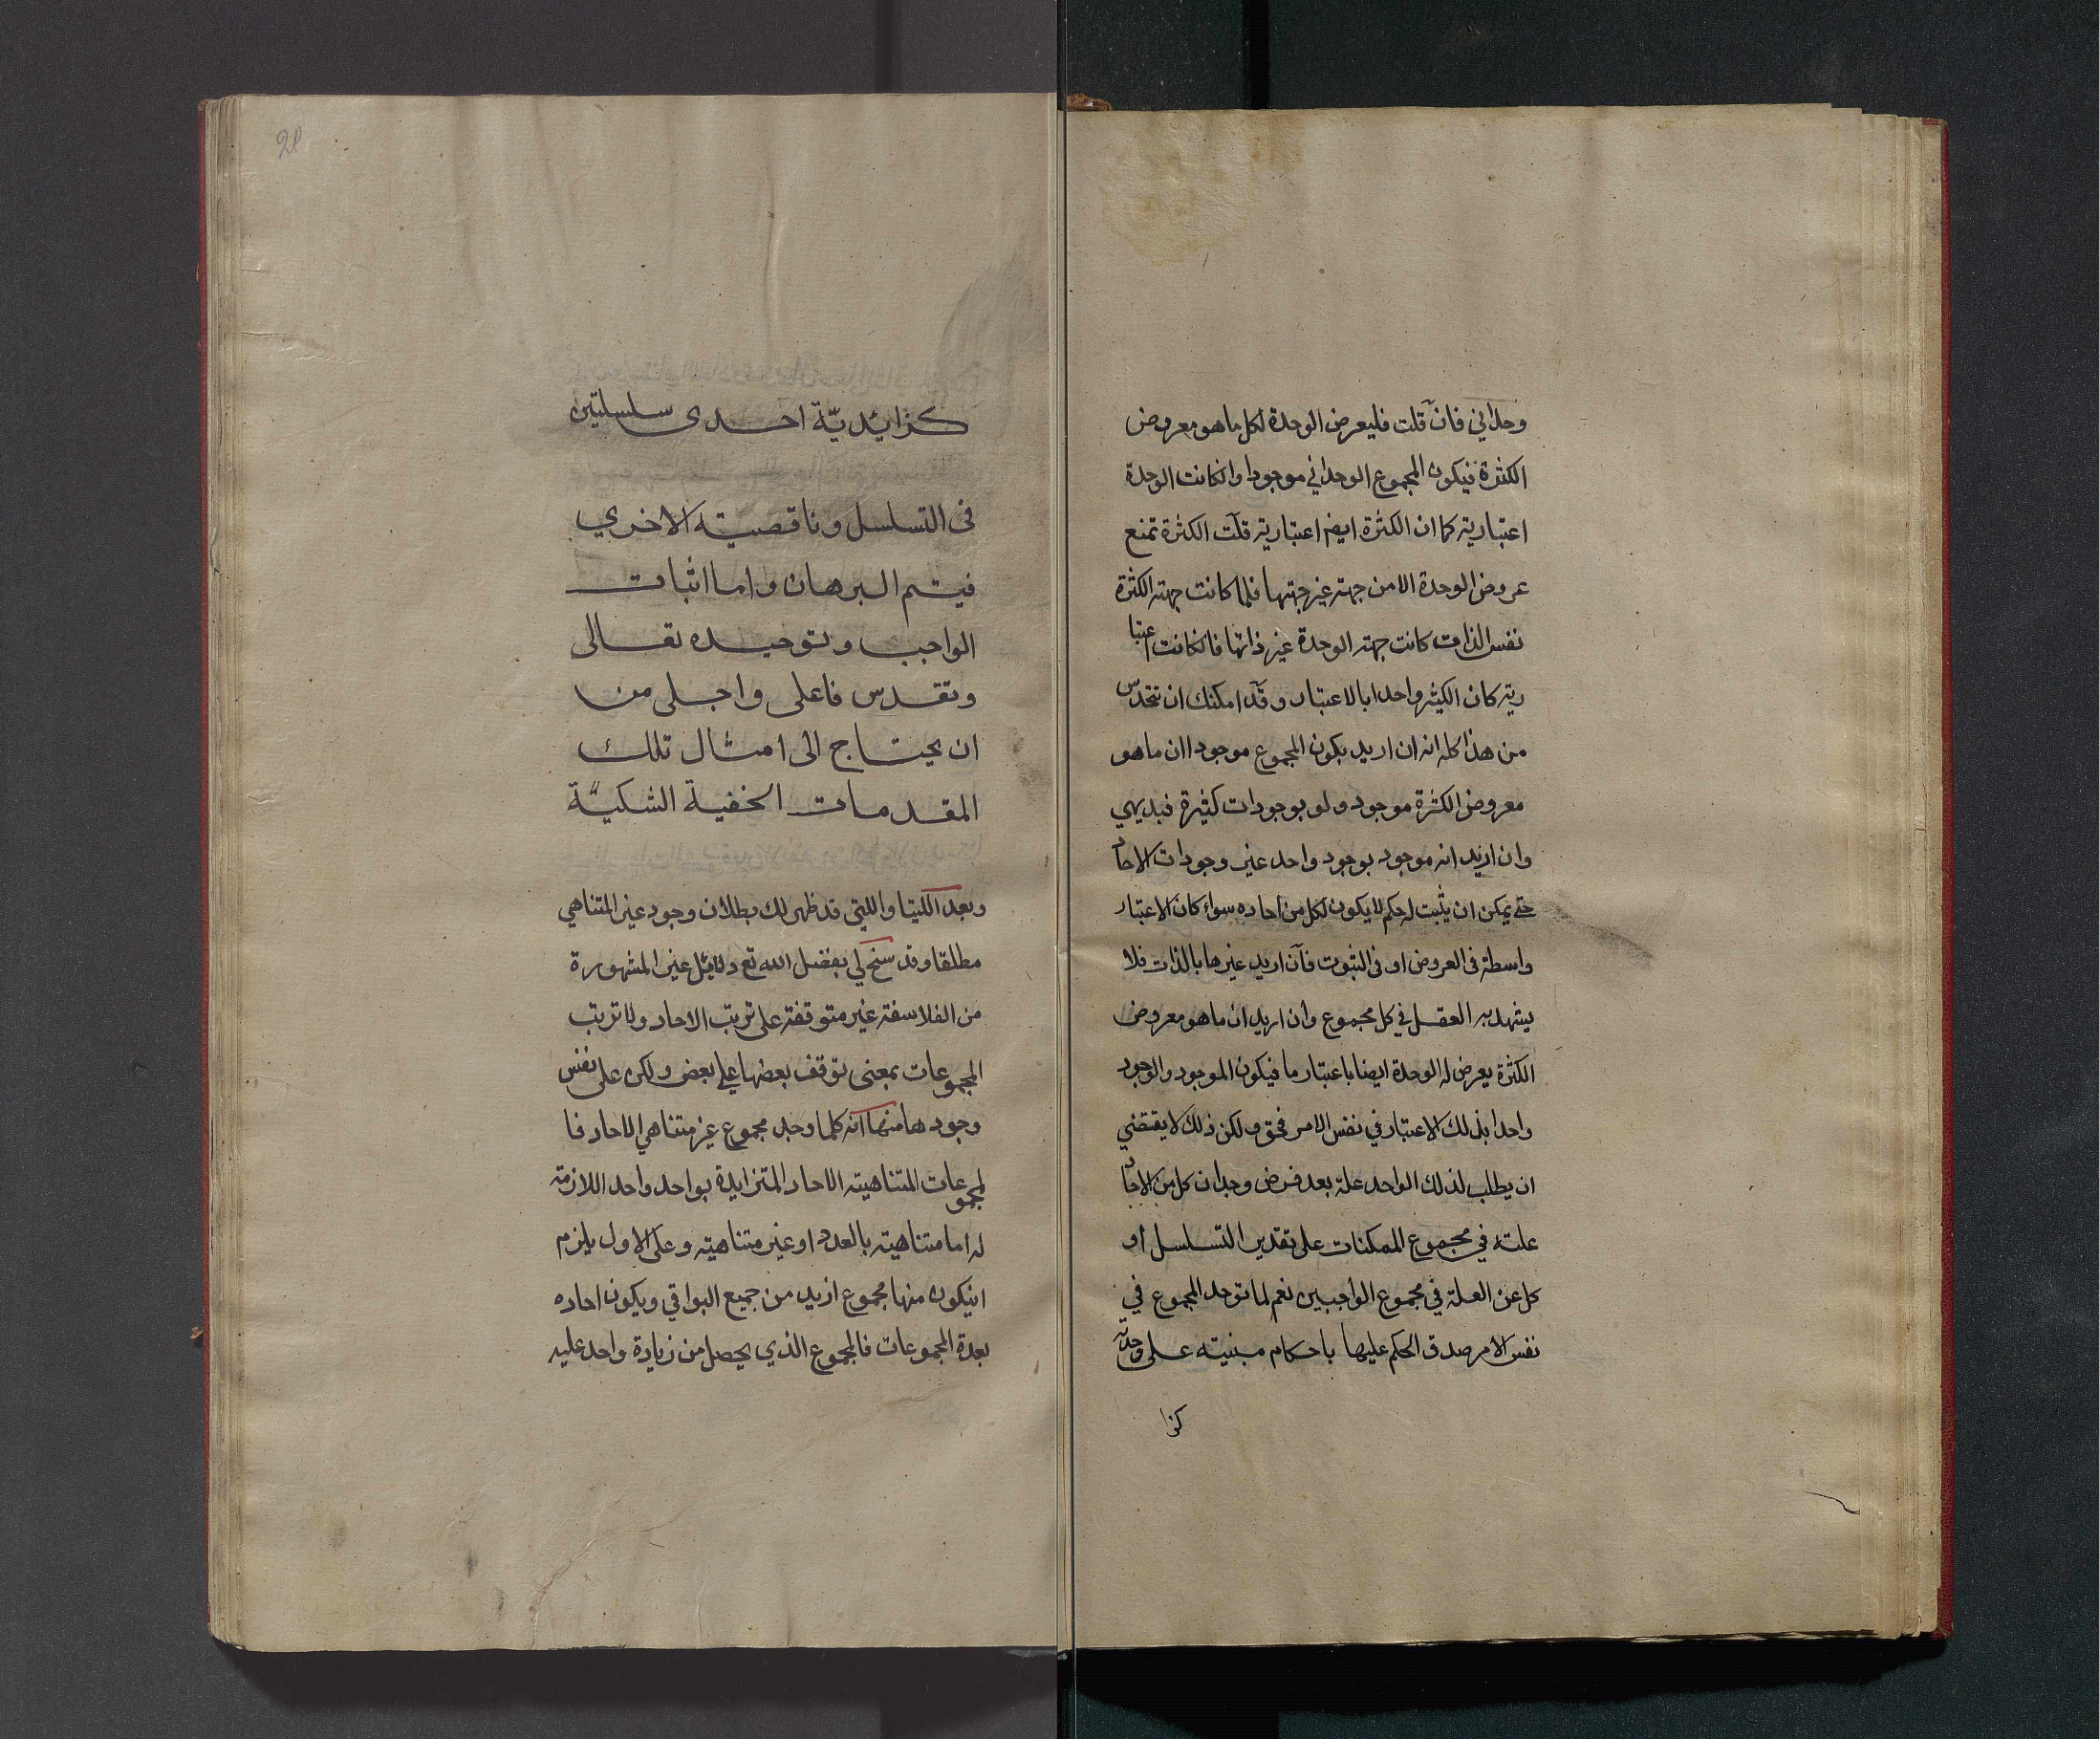 وحداني فان قلت فليعرض الوحدة لكل ما هو معروض
الكثرة فيكون المجموع الوحداني موجودا وانكانت الوحدة
اعتبارية كما ان الكثرة ايضا اعتبارية قلت الكثرة تمنع
عروض الوحدة الا من جهة غير جهتها فلما كانت جهة الكثرة
نفس الذات كانت جهة الوحدة غير ذاتها فانكانت اعتبا
رية كان الكثير واحدا بالاعتبار وقد امكنك ان تتحدس
من هذا كله انه ان اريد بكون المجموع موجودا ان ما هو
معروض الكثرة موجود ولو بوجودات كثيرة فبديهي
وان اريد انه موجود بوجود واحد غير وجودات الاحاد
حتى يمكن ان يثبت له حكم لا يكون لكل من احاده سواء كان الاعتبار
واسطة في العروض او في الثبوت فان اريد غيرها بالذات فلا
يشهد به العقل في كل مجموع وان اريد ان ما هو معروض
الكثرة يعرض له الوحدة ايضا باعتبار ما فيكون الموجود والوجود
واحدا بذلك الاعتبار في نفس الامر فحق ولكن ذلك لا يقتضي
ان يطلب لذلك الواحد علة بعد فرض وجدان كل من الاحاد
علته في مجموع الممكنات على تقدير التسلسل او
كل عن العلة في مجموع الواجبين نعم لما توحد المجموع في
نفس الامر صدق الحكم عليها باحكام مبنية على وحدته
كزا
28
كزايديّة احدى سلسلتين
في التسلسل وناقصية الاخري
فيتم البرهان واما اثبات
الواجب وتوحيده تعالى
وتقدس فاعلى واجلى من
ان يحتاج الى امثال تلك
المقدمات الخفية الشكيّة
وبعد اللتيا واللتى قد ظهر لك بطلان وجود غير المتناهي
مطلقا وقد سنح لي بفضل الله تع دلايل غير المشهورة
من الفلاسفة غير متوقفة على ترتب الاحاد ولا ترتب
المجموعات بمعنى توقف بعضها على بعض ولكن على نفس
وجودها منها انه كلما وجد مجموع غير متناهي الاحاد فا
لمجموعات المتناهية الاحاد المتزايدة بواحد واحد اللازمة
له اما متناهية بالعدد او غير متناهية وعلى الاول يلزم
انيكون منها مجموع ازيد من جميع البواقي ويكون احاده
بعدة المجموعات فالمجموع الذي يحصل من زيادة واحد عليه